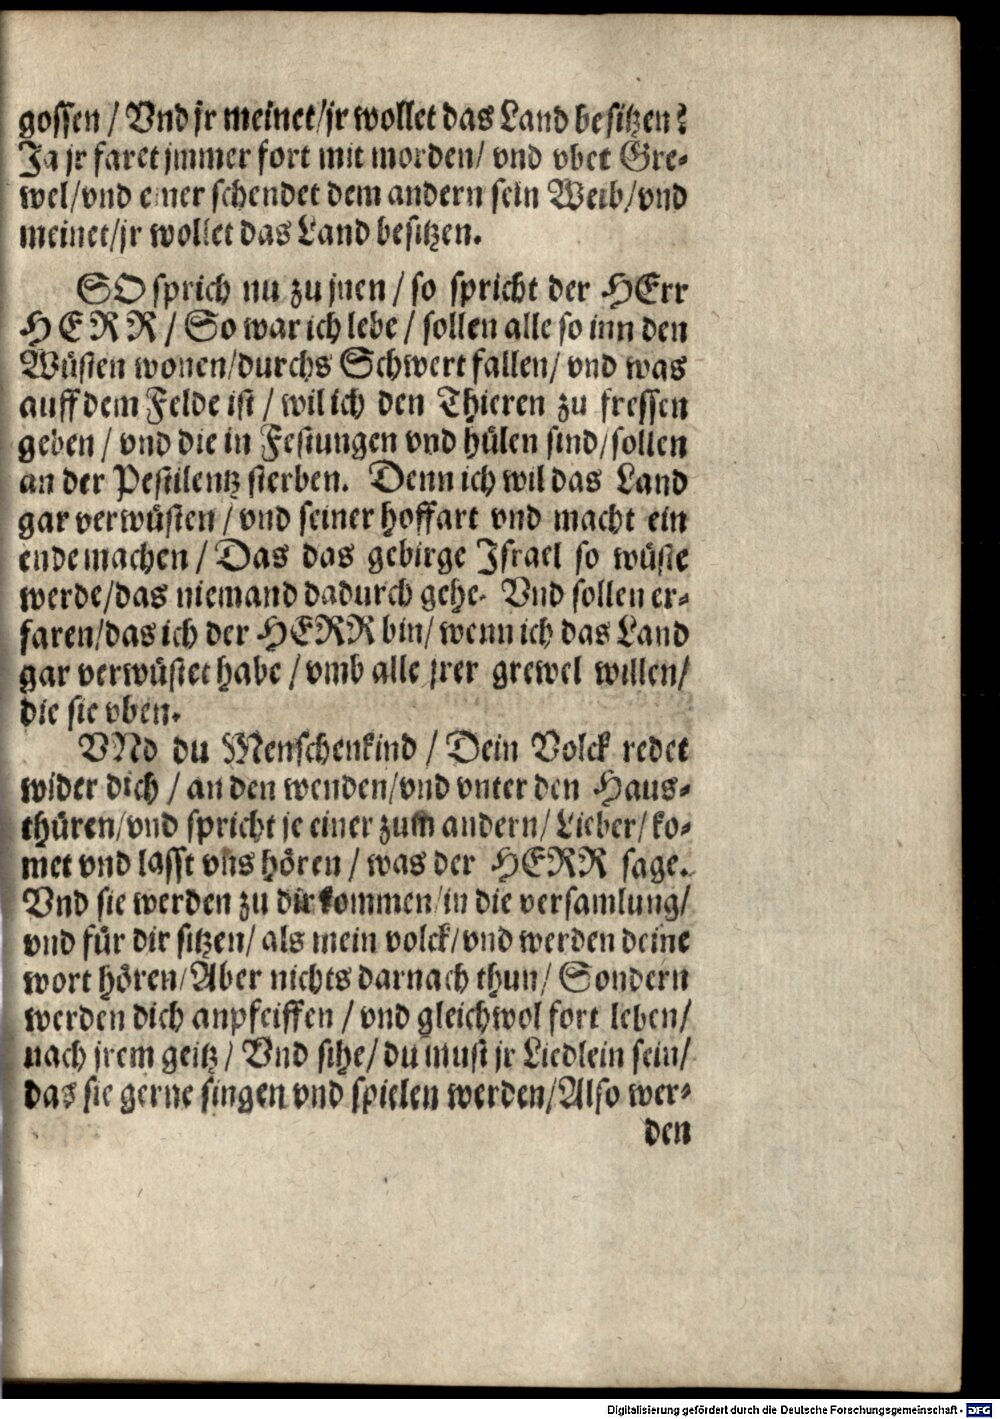 gossen / Vnd jr meinet/jr wollet das Land besitzen?
Ja jr faret jmmer fort mit morden/ vnd vbet Gre-
wel/vnd einer schendet dem andern sein Weib/vnd
meinet/jr wollet das Land besitzen.
SO sprich nu zu jnen / so spricht der HErr
HERR / So war ich lebe / sollen alle so inn den
Wüsten wonen/durchs Schwert fallen/ vnd was
auff dem Felde ist / wil ich den Thieren zu fressen
geben / vnd die in Festungen vnd hülen sind/sollen
an der Pestilentz sterben. Denn ich wil das Land
gar verwüsten / vnd seiner hoffart vnd macht ein
ende machen / Das das gebirge Israel so wüste
werde/das niemand dadurch gehe. Vnd sollen er-
faren/das ich der HERR bin/ wenn ich das Land
gar verwüstet habe / vmb alle jrer grewel willen/
die sie vben.
VNd du Menschenkind / Dein Volck redet
wider dich / an den wenden/vnd vnter den Haus-
thüren/vnd spricht je einer zum andern/ Lieber/ ko-
met vnd lasst vns hören / was der HERR sage.
Vnd sie werden zu dir kommen/in die versamlung/
vnd für dir sitzen/ als mein volck/vnd werden deine
wort hören/Aber nichts darnach thun/ Sondern
werden dich anpfeiffen / vnd gleichwol fort leben/
nach jrem geitz / Vnd sihe/ du must jr Liedlein sein/
das sie gerne singen vnd spielen werden/Also wer-
den
Digitalisierung gefördert durch die Deutsche Forschungsgemeinschaft - DFG